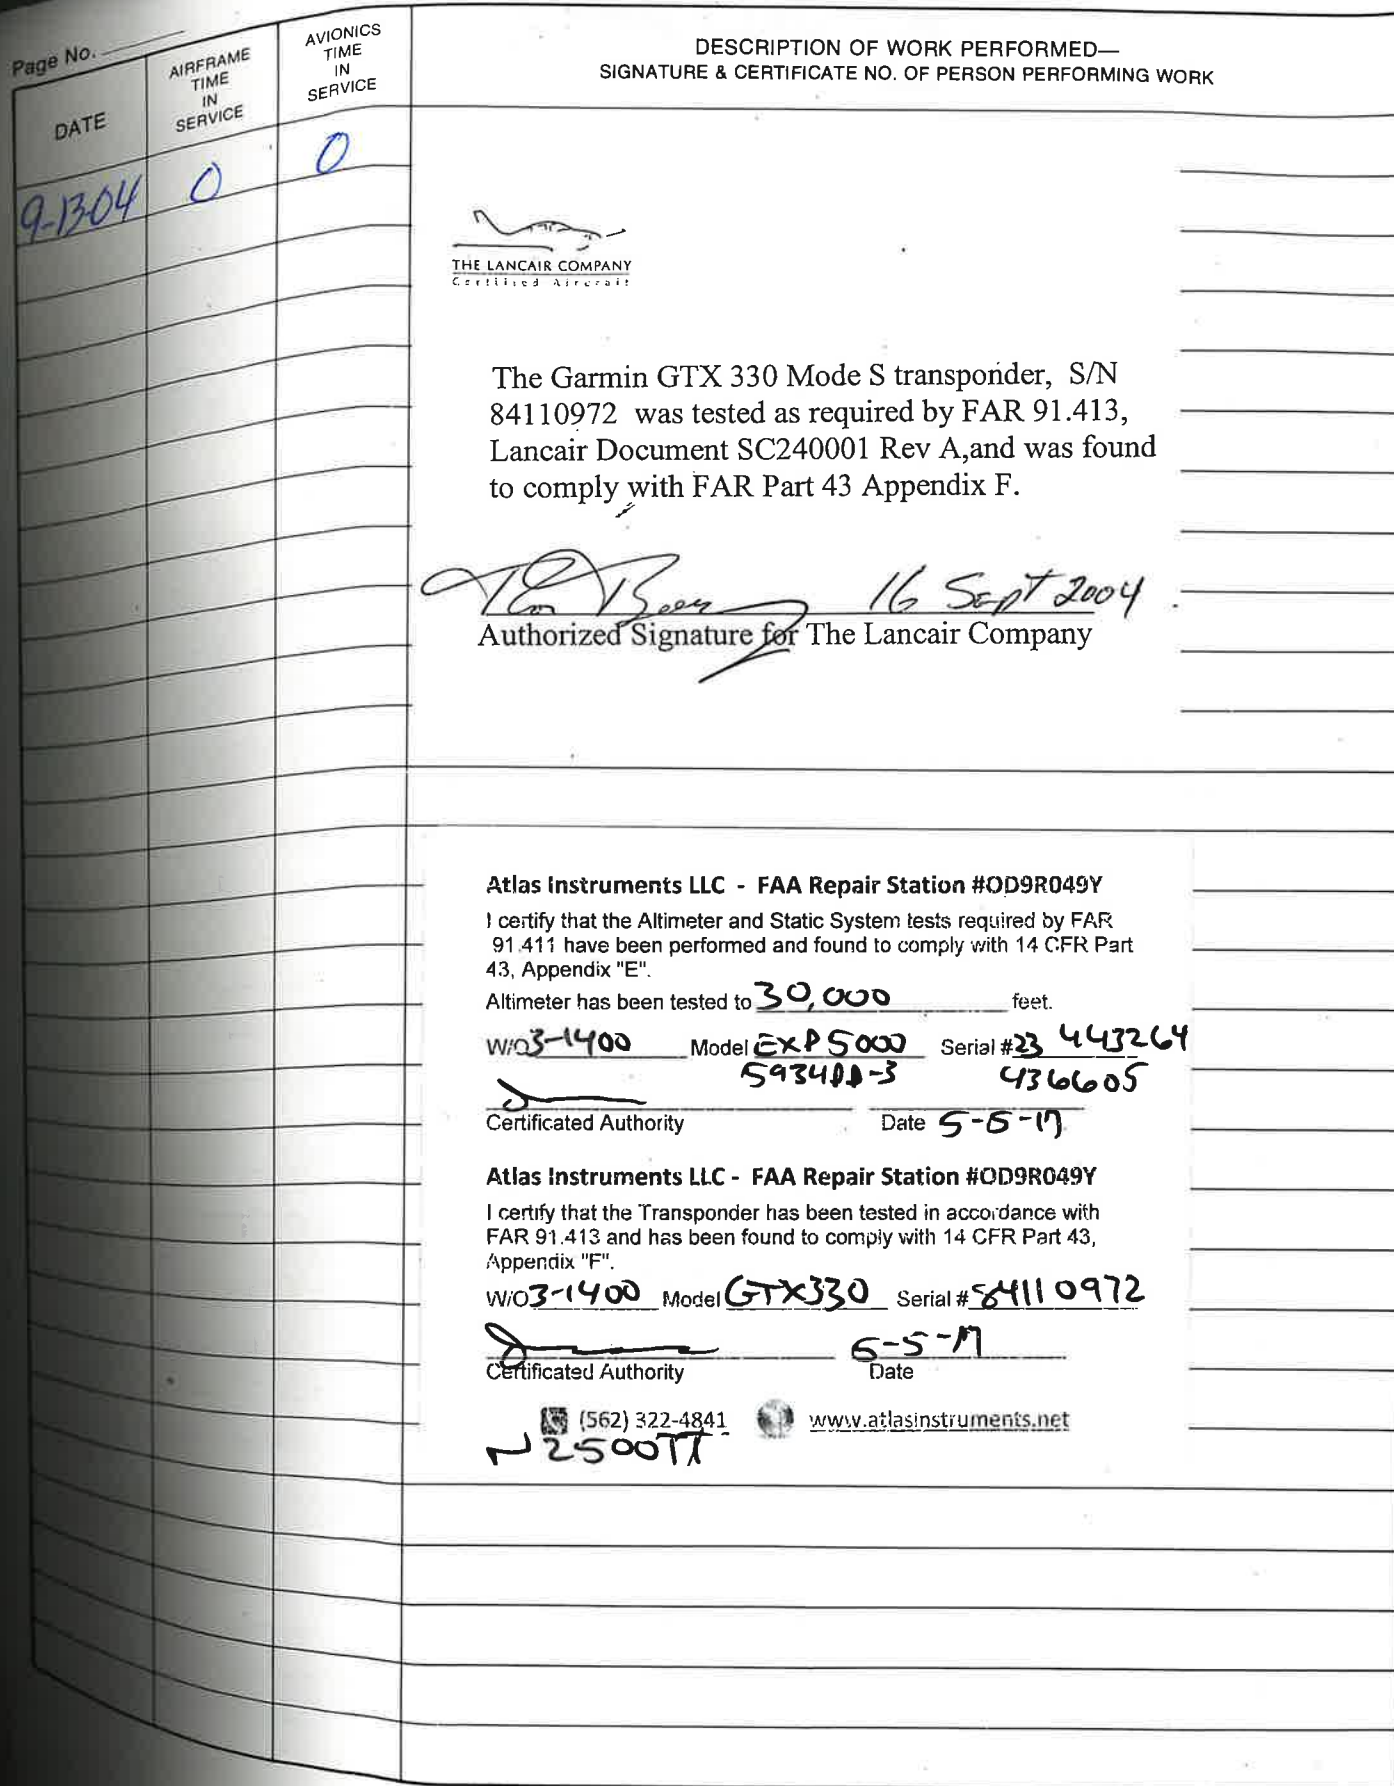 Page No.
DATE
AIRFRAME
TIME
IN
SERVICE
AVIONICS
TIME
IN
SERVICE
DESCRIPTION OF WORK PERFORMED—
SIGNATURE & CERTIFICATE NO. OF PERSON PERFORMING WORK
9-13-04 0 0
THE LANCAIR COMPANY
Certified Aircraft
The Garmin GTX 330 Mode S transponder, S/N
84110972 was tested as required by FAR 91.413,
Lancair Document SC240001 Rev A,and was found
to comply with FAR Part 43 Appendix F.
16 Sept 2004
Authorized Signature for The Lancair Company
Atlas Instruments LLC - FAA Repair Station #OD9R049Y
I certify that the Altimeter and Static System tests required by FAR
91.411 have been performed and found to comply with 14 CFR Part
43, Appendix "E".
Altimeter has been tested to 30,000 feet.
W/O 3-1400 Model EXP5000 Serial # 23 443264
436605
Certificated Authority Date 5-5-17
Atlas Instruments LLC - FAA Repair Station #OD9R049Y
I certify that the Transponder has been tested in accordance with
FAR 91.413 and has been found to comply with 14 CFR Part 43,
Appendix "F".
W/O 3-1400 Model GTX330 Serial # 84110972
5-5-17
Certificated Authority Date
(562) 322-4841 www.atlasinstruments.net
N2500TT